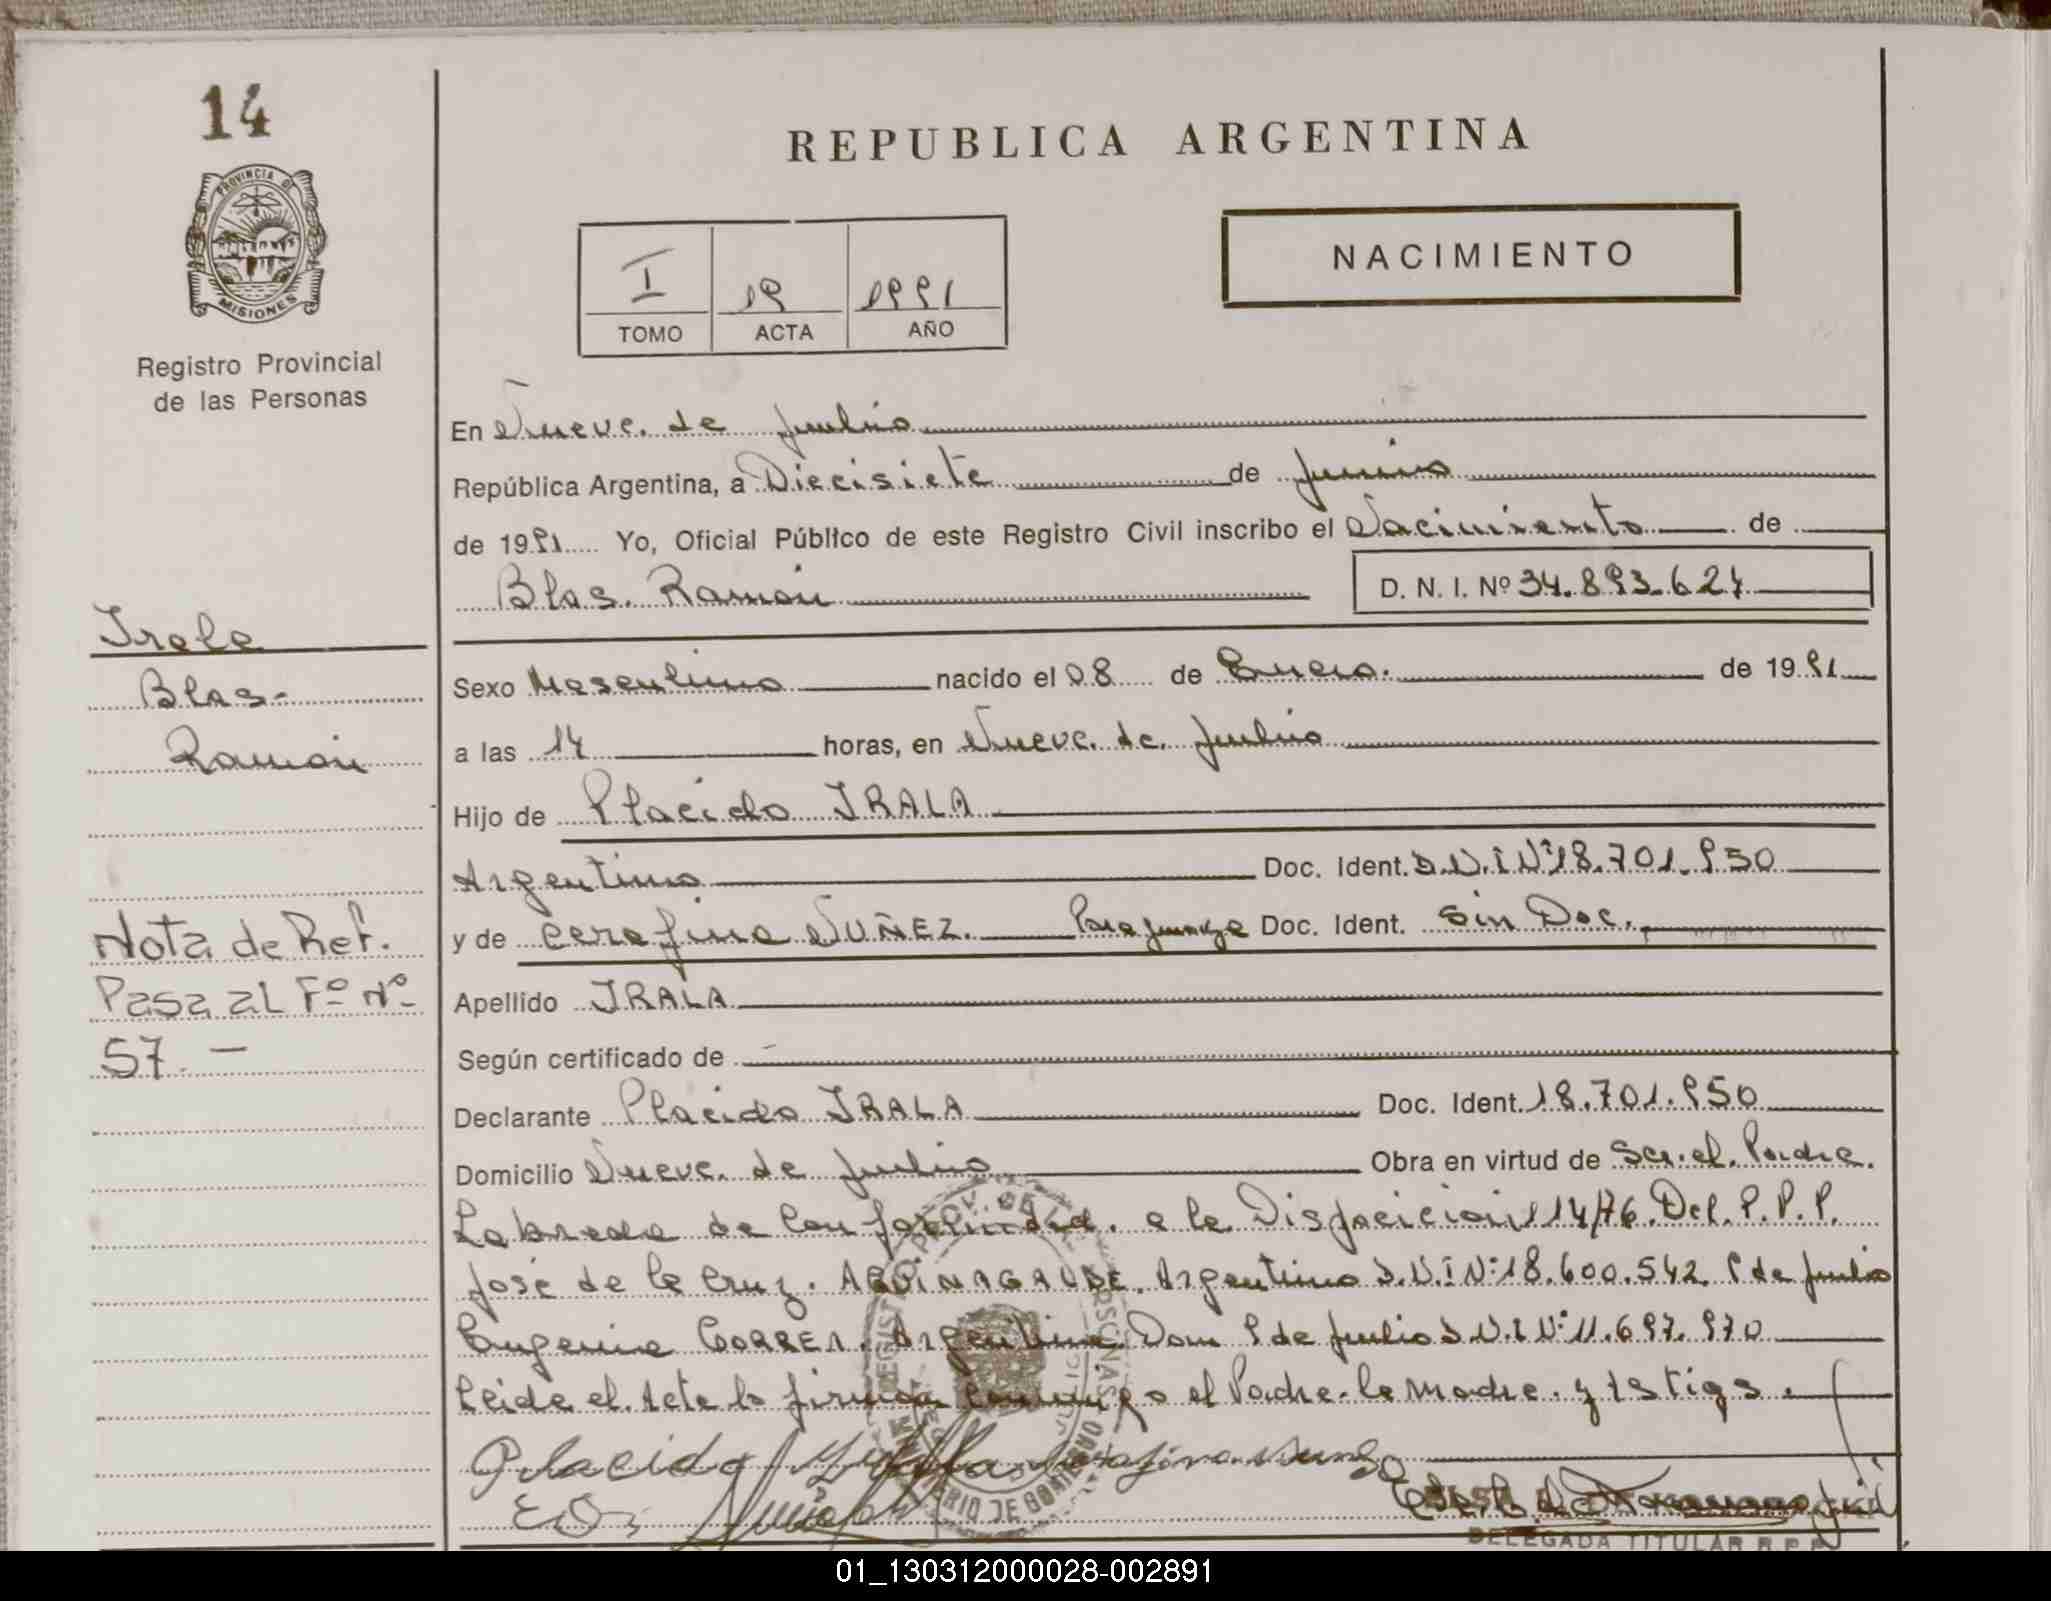 14
PROVINCIA DE
MISIONES
Registro Provincial
de las Personas
REPUBLICA ARGENTINA
NACIMIENTO
I 19 1991
TOMO ACTA AÑO
En Nueve de Julio
República Argentina, a Diecisiete de Junio
de 1991 Yo, Oficial Público de este Registro Civil inscribo el Nacimiento de
Blas Ramón D. N. I. Nº 34.893.627
Irala
Blas
Ramón
Sexo Masculino nacido el 08 de Enero de 1991
a las 14 horas, en Nueve de Julio
Hijo de Placido IRALA
Argentino Doc. Ident. D.N.I Nº 18.701.950
y de Cerefina NUÑEZ. Paraguaya Doc. Ident. Sin Doc.
Nota de Ref.
Pasa al Fº Nº
57. —
Apellido IRALA
Según certificado de —
Declarante Placido IRALA Doc. Ident. 18.701.950
Domicilio Nueve de Julio Obra en virtud de Ser el Padre.
Labrada de Conformidad a la Disposición 114/76 Del.
José de la Cruz Argentino D.N.I Nº 18.600.542 9 de Julio
Eugenia CORREA Argentina Dom 9 de Julio D.N.I Nº 11.697.970
Leida el Acta la firman conmigo el Padre la Madre y tstigs.
Placido
DELEGADA TITULAR R.P.P.
01_130312000028-002891